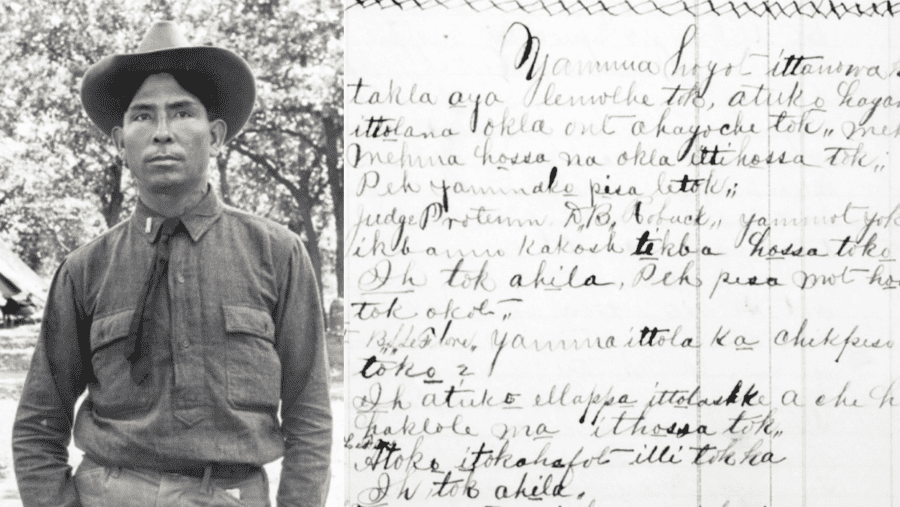 Yammua hoyot ittanowa
takla aya lemolhe tok, atuko hayan
ittolana okla ont ahayoche tok,, meh
mehma hossa na okla ittihossa tok,;
Peh yammako pisa letok,;
Judge Protemn D,B, Robuck,, yammot yok
ikbanno kakosh tekba hossa toko
Ih tok ahila, Peh pesa mot ho
tok okot,,
B,, LeFlore, Yamma ittola ka chikpeso
toko ?
Ih atuko ellappa ittolaskke a che h
haklole ma ithossa tok,,
Atoko itokahafot illi tok ka
Ih tok ahila.